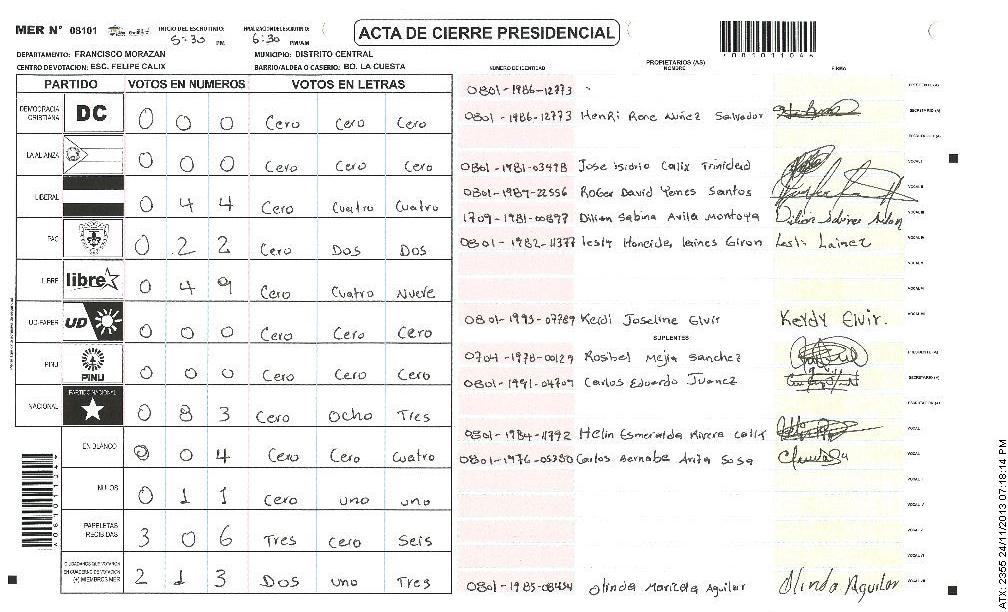 MER N° 08101 INICIO DEL ESCRUTINIO: 5:30 PM FINALIZACION DEL ESCRUTINIO: 6:30 PM/AM ACTA DE CIERRE PRESIDENCIAL
DEPARTAMENTO: FRANCISCO MORAZAN MUNICIPIO: DISTRITO CENTRAL
CENTRO DE VOTACION: ESC. FELIPE CALIX BARRIO/ALDEA O CASERIO: BO. LA CUESTA
NUMERO DE IDENTIDAD PROPIETARIOS (AS) NOMBRE FIRMA
PARTIDO VOTOS EN NUMEROS VOTOS EN LETRAS
DEMOCRACIA CRISTIANA DC 0 0 0 Cero Cero Cero
LA ALIANZA 0 0 0 Cero Cero Cero
LIBERAL 0 4 4 Cero Cuatro Cuatro
PAC 0 2 2 Cero Dos Dos
LIBRE libre 0 4 9 Cero Cuatro Nueve
UD-FAPER UD 0 0 0 Cero Cero Cero
PINU PINU 0 0 0 Cero Cero Cero
NACIONAL PARTIDO NACIONAL 0 8 3 Cero Ocho Tres
EN BLANCO 0 0 4 Cero Cero Cuatro
NULOS 0 1 1 Cero uno uno
PAPELETAS RECIBIDAS 3 0 6 Tres Cero Seis
CIUDADANOS QUE VOTARON EN CUADERNO DE VOTACION (+) MIEMBROS MER 2 1 3 Dos uno Tres
PRESIDENTE (A)
0801-1986-12773
SECRETARIO (A)
0801-1986-12773 Henri Rone Nuñez Salvador
VOCAL I
0801-1981-03498 Jose isidro Calix Trinidad
VOCAL II
0801-1987-22556 Roger David Yanes Santos
VOCAL III
1709-1981-00897 Dilian Sabina Avila Montoya
VOCAL IV
0801-1982-11377 Lesly
0801-1995-07789 Keidi Joseline Elvir Keydy Elvir.
SUPLENTES
0704-1978-00129 Rosbel Mejia Sanchez PRESIDENTE (A)
0801-1991-04707 Carlos Eduardo Juanez SECRETARIO (A)
0801-1984-11792 Helin Esmeralda Rivera Calix VOCAL I
0801-1976-05380 Carlos Bernabe Avila Sosa
0801-1985-08454 Olinda Maricela Aguilar Olinda Aguilar
ATX. 2355 24/11/2013 07:18:14 PM